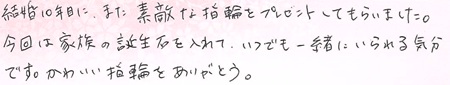 結婚10年目に、また素敵な指輪をプレゼントしてもらいました。
今回は家族の誕生石を入れて、いつでも一緒にいられる気分
です。かわいい指輪をありがとう。